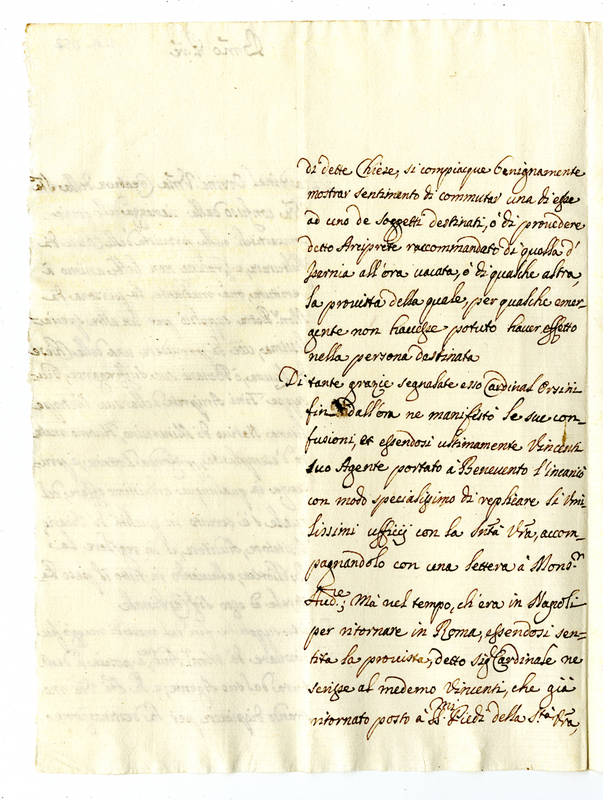 di dette Chiese, si compiacque benignamente
mostrar sentimento di commutar una di esse
ad uno de soggetti destinati, ò di provedere
detto Arciprete raccommandato di quella d'
Isernia all'ora vacata, ò di qualche altra,
la provista della quale, per qualche emer-
gente non havesse potuto haver effetto
nella persona destinata
Di tante grazie segnalate esso Cardinal Orsini
fin dall'ora ne manifestò le sue con-
fusioni, et essendosi ultimamente Vincenti
suo Agente portato à Benevento l'incaricò
con modo specialissimo di replicare li Umi-
lissimi ufficij con la Stà Vrã, accom-
pagnandolo con una lettera à Mons.r
Aud.re; Mà nel tempo, ch'era in Napoli
per ritornare in Roma, essendosi sen-
tita la provista, detto Sig Cardinale ne
scrisse al medemo Vincenti, che già
ritornato posto à Piedi della Stà Vrã,